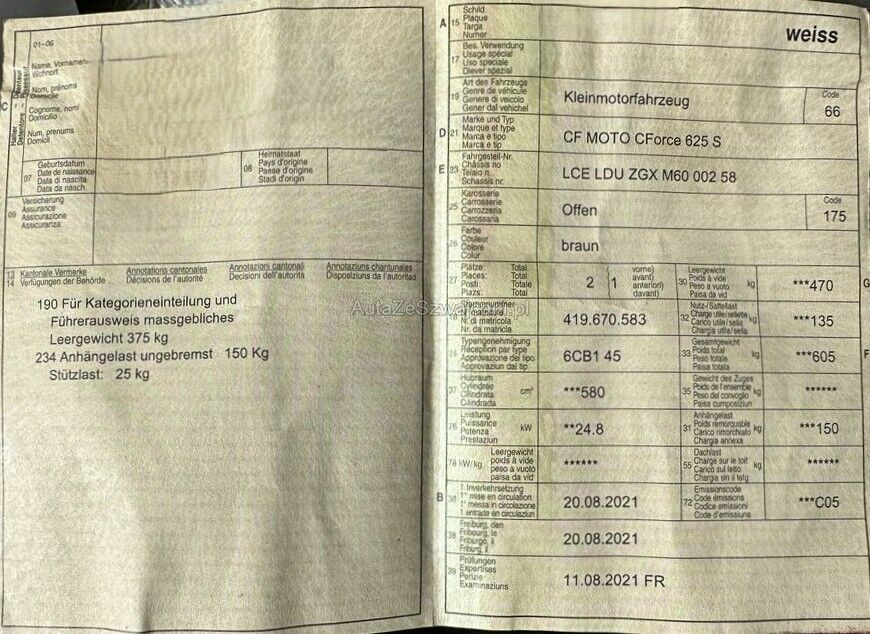 01-06
Name, Vornamen
Wohnort
Nom, prénoms
Domicile
Cognome, nomi
Domicilio
Num, prenums
Domicil
C
Halter
Détenteur
Detentore
Possessur
07
Geburtsdatum
Date de naissance
Data di nascita
Data da nasch.
08
Heimatstaat
Pays d'origine
Paese d'origine
Stadi d'origin
09
Versicherung
Assurance
Assicurazione
Assicuranza
13 Kantonale Vermerke
14 Verfügungen der Behörde
Annotations cantonales
Décisions de l'autorité
Annotazioni cantonali
Decisioni dell'autorità
Annotaziuns chantunalas
Disposiziuns da l'autoritad
190 Für Kategorieneinteilung und
Führerausweis massgebliches
Leergewicht 375 kg
234 Anhängelast ungebremst 150 Kg
Stützlast: 25 kg
A 15
Schild
Plaque
Targa
Numer
weiss
17
Bes. Verwendung
Usage spécial
Uso speciale
Diever spezial
19
Art des Fahrzeugs
Genre de véhicule
Genere di veicolo
Gener dal vehichel
Kleinmotorfahrzeug
Code
66
D 21
Marke und Typ
Marque et type
Marca e tipo
Marca e tip
CF MOTO CForce 625 S
E 23
Fahrgestell-Nr.
Châssis no
Telaio n.
Schassis nr.
LCE LDU ZGX M60 002 58
25
Karosserie
Carrosserie
Carrozzeria
Carossaria
Offen
Code
175
26
Farbe
Couleur
Colore
Colur
braun
27
Plätze: Total
Places: Total
Posti: Totale
Plazs: Total
2 1
vorne)
avant)
anteriori)
davant)
30
Leergewicht
Poids à vide
Peso a vuoto
Paisa da vid
kg
***470
G
18
Stammnummer
No matricule
N. di matricola
Nr. da matricla
419.670.583
32
Nutz-/Sattellast
Charge utile/sellette
Carico utile/sella
Chargia utila/sella
kg
***135
24
Typengenehmigung
Réception par type
Approvazione del tipo
Approvaziun dal tip
6CB1 45
33
Gesamtgewicht
Poids total
Peso totale
Paisa totala
kg
***605
F
37
Hubraum
Cylindrée
Cilindrata
Cilindrada
cm³
***580
35
Gewicht des Zuges
Poids de l'ensemble
Peso del convoglio
Paisa cumposiziun
kg
******
76
Leistung
Puissance
Potenza
Prestaziun
kW
**24.8
31
Anhängelast
Poids remorquable
Carico rimorchiato
Chargia annexa
kg
***150
78 kW/kg
Leergewicht
poids à vide
peso a vuoto
paisa da vid
******
55
Dachlast
Charge sur le toit
Carico sul tetto
Chargia sin il tetg
kg
******
B 36
1. Inverkehrsetzung
1re mise en circulation
1a messa in circolazione
1. entrada en circulaziun
20.08.2021
72
Emissionscode
Code émissions
Codice emissioni
Code d'emissiuns
***C05
38
Freiburg, den
Fribourg, le
Friburgo, il
Friburg, il
20.08.2021
39
Prüfungen
Expertises
Perizie
Examinaziuns
11.08.2021 FR
AutaZeSzwajcarii.pl